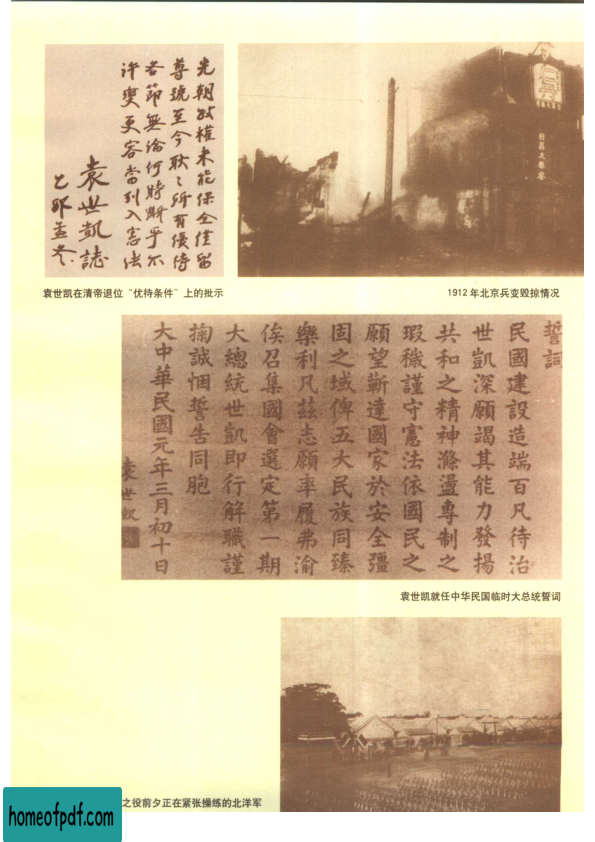 先朝政權未能保全僅留
尊號至今耿々所有優待
各節無論何時斷乎不
許變更容當列入憲法
袁世凱誌
乙卯孟冬
日昌大參房
袁世凯在清帝退位“优待条件”上的批示
1912年北京兵变毁掠情况
誓詞
民國建設造端百凡待治
世凱深願竭其能力發揚
共和之精神滌盪專制之
瑕穢謹守憲法依國民之
願望蘄達國家於安全彊
固之域俾五大民族同臻
樂利凡茲志願率履弗渝
俟召集國會選定第一期
大總統世凱即行解職謹
掬誠悃誓告同胞
大中華民國元年三月初十日
袁世凱
袁世凯就任中华民国临时大总统誓词
之役前夕正在紧张操练的北洋军
homeofpdf.com